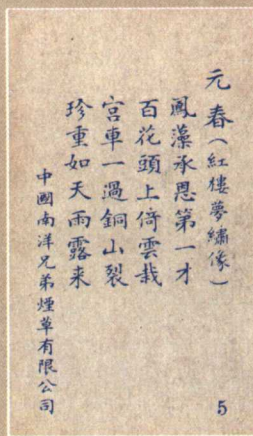 元春（紅樓夢繡像）
鳳藻承恩第一才
百花頭上倚雲栽
宮車一過銅山裂
珍重如天雨露来
中國南洋兄弟煙草有限公司
5